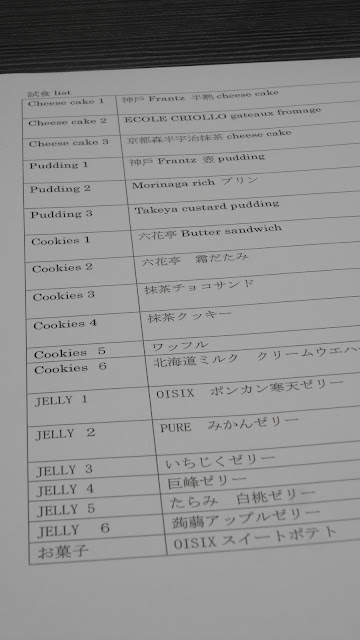 試食 list
Cheese cake 1 神戸 Frantz 半熟 cheese cake
Cheese cake 2 ECOLE CRIOLLO gateaux fromage
Cheese cake 3 京都森半宇治抹茶 cheese cake
Pudding 1 神戸 Frantz 壺 pudding
Pudding 2 Morinaga rich プリン
Pudding 3 Takeya custard pudding
Cookies 1 六花亭 Butter sandwich
Cookies 2 六花亭 霜だたみ
Cookies 3 抹茶チョコサンド
Cookies 4 抹茶クッキー
Cookies 5 ワッフル
Cookies 6 北海道ミルク クリームウエハ
JELLY 1 OISIX ポンカン寒天ゼリー
JELLY 2 PURE みかんゼリー
JELLY 3 いちじくゼリー
JELLY 4 巨峰ゼリー
JELLY 5 たらみ 白桃ゼリー
JELLY 6 蒟蒻アップルゼリー
お菓子 OISIX スイートポテト